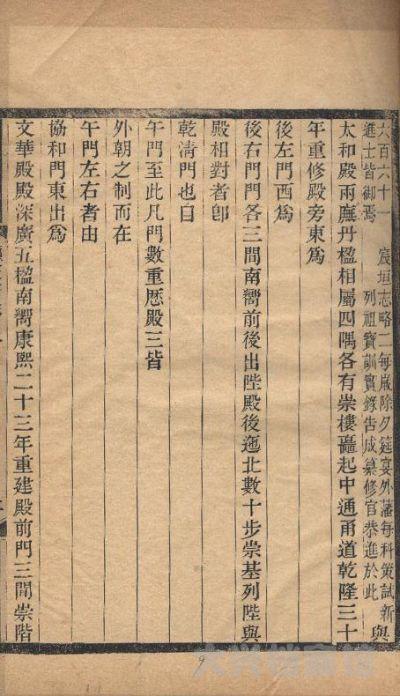 大百六十一 宸垣志略二每歲除夕筵宴外藩每科策試新
進士皆御焉 列祖寶訓實錄告成纂修官恭進於此
與
太和殿兩廡丹楹相屬四隅各有崇樓矗起中通甬道乾隆三十
年重修殿旁東爲
後左門西爲
後右門門各三間南嚮前後出陛殿後迤北數十步崇基列陛與
殿相對者卽
乾淸門也自
午門至此凡門數重歷殿三皆
外朝之制而在
午門左右者由
協和門東出爲
文華殿殿深廣五楹南嚮康熙二十三年重建殿前門三間崇階